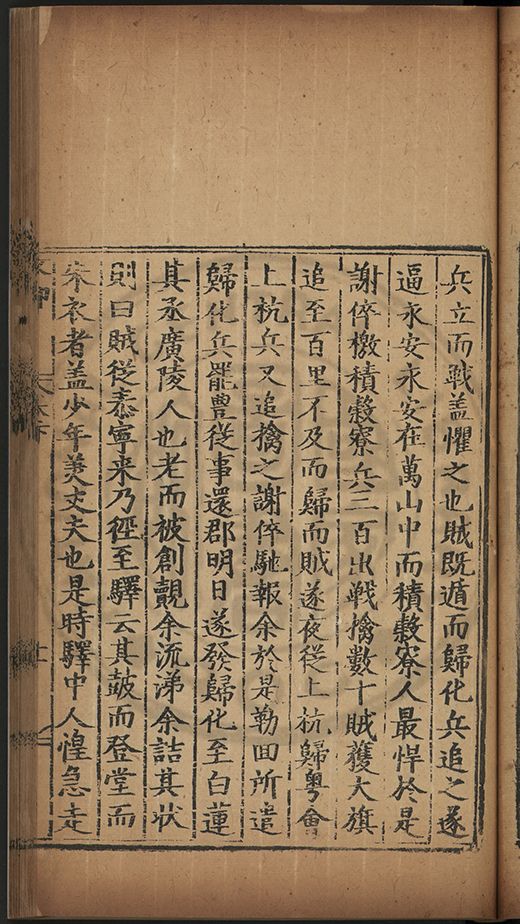 兵立而戰盖懼之也賊既遁而歸化兵追之遂
逼永安永安在萬山中而積穀寮人最悍於是
謝倅檄積穀寮兵三百出戰擒數十賊獲大旗
追至百里不及而歸而賊遂夜從上杭歸粤會
上杭兵又追擒之謝倅馳報余於是勒回所遣
歸化兵罷豊從事還郡明日遂發歸化至白蓮
其丞廣陵人也老而被創覩余流涕余詰其狀
則曰賊從泰寧来乃徑至驛云其皷而登堂而
朱衣者盖少年美丈夫也是時驛中人惶急走